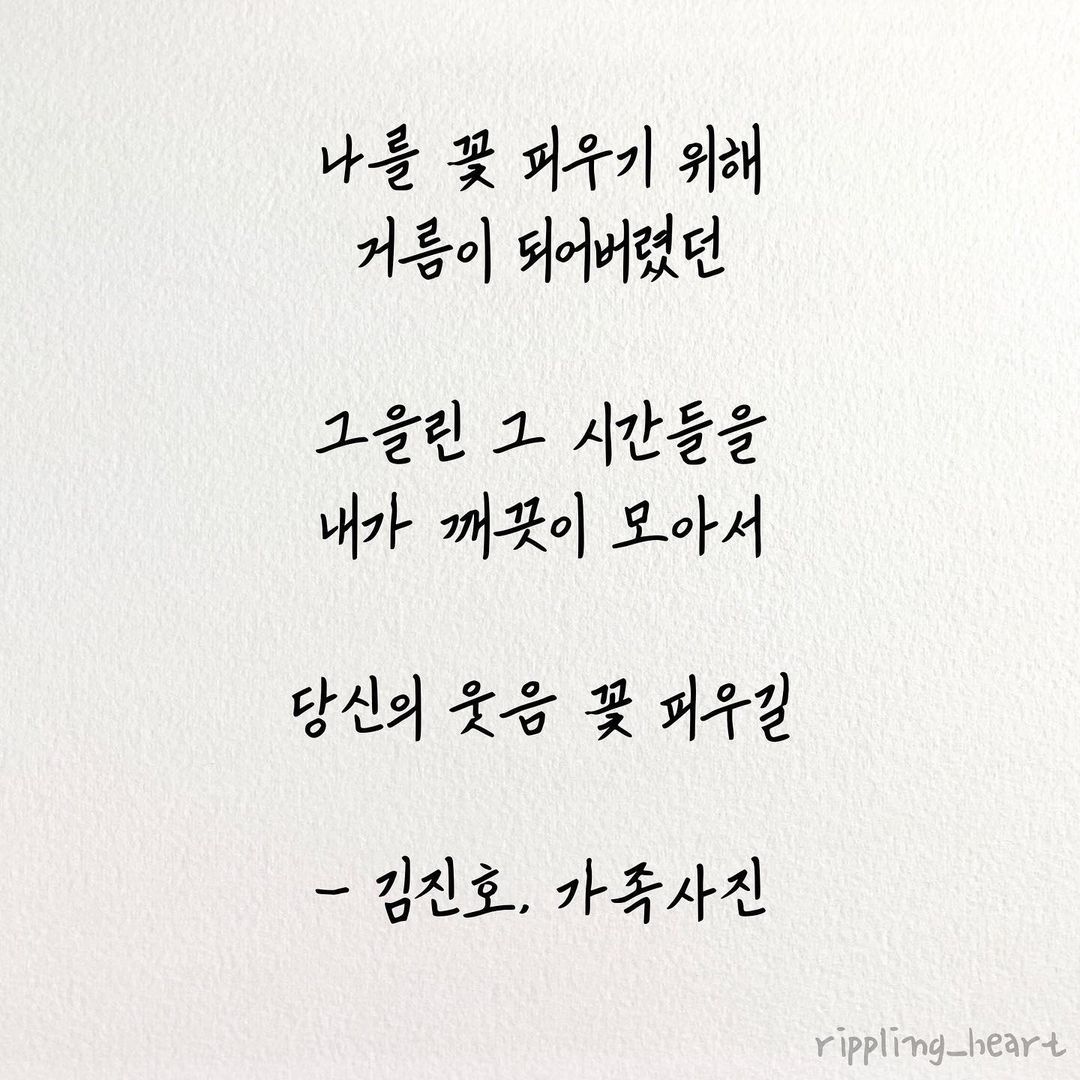 나를 꽃 피우기 위해
거름이 되어버렸던
그을린 그 시간들을
내가 깨끗이 모아서
당신의 웃음 꽃 피우길
- 김진호, 가족사진
rippling_heart